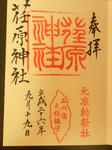 奉拝
元准勅祭社
荏原神社
品川宿
平成二十六年
九月十九日
荏原神社